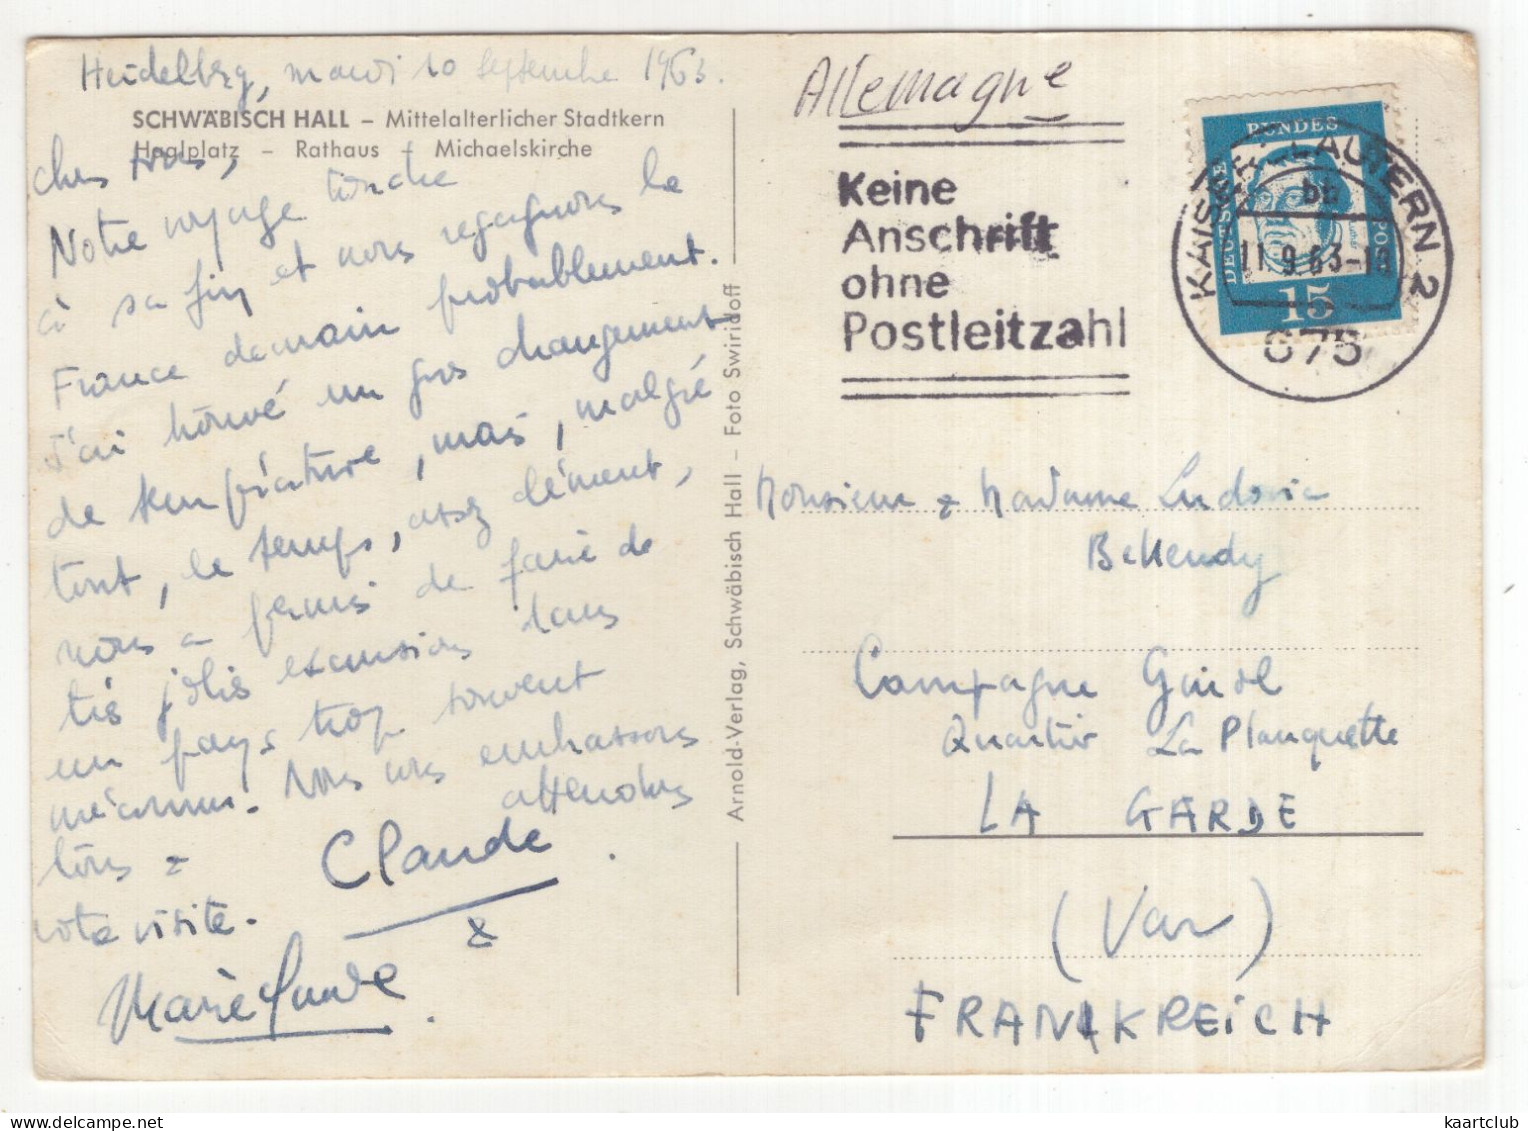 Heidelberg, mardi 10 septembre 1963.
SCHWÄBISCH HALL – Mittelalterlicher Stadtkern
Haalplatz – Rathaus – Michaelskirche
chers tous,
Notre voyage touche
à sa fin et nous regagnons la
France demain probablement.
J'ai trouvé un gros changement
de température, mais, malgré
tout, le temps, assez clément,
nous a permis de faire de
très jolies excursions dans
un pays trop souvent
méconnu. Nous vous embrassons
tous & attendons
votre visite.
Claude
&
Marie Laude.
Arnold-Verlag, Schwäbisch Hall – Foto Swiridoff
Allemagne
Keine
Anschrift
ohne
Postleitzahl
DEUTSCHE BUNDESPOST
15
KAISERSLAUTERN 2
bb
11.9.63-18
675
Monsieur & Madame Ludovic
Campagne
Quartier La Planquette
LA GARDE
(Var)
FRANKREICH
kaartclub